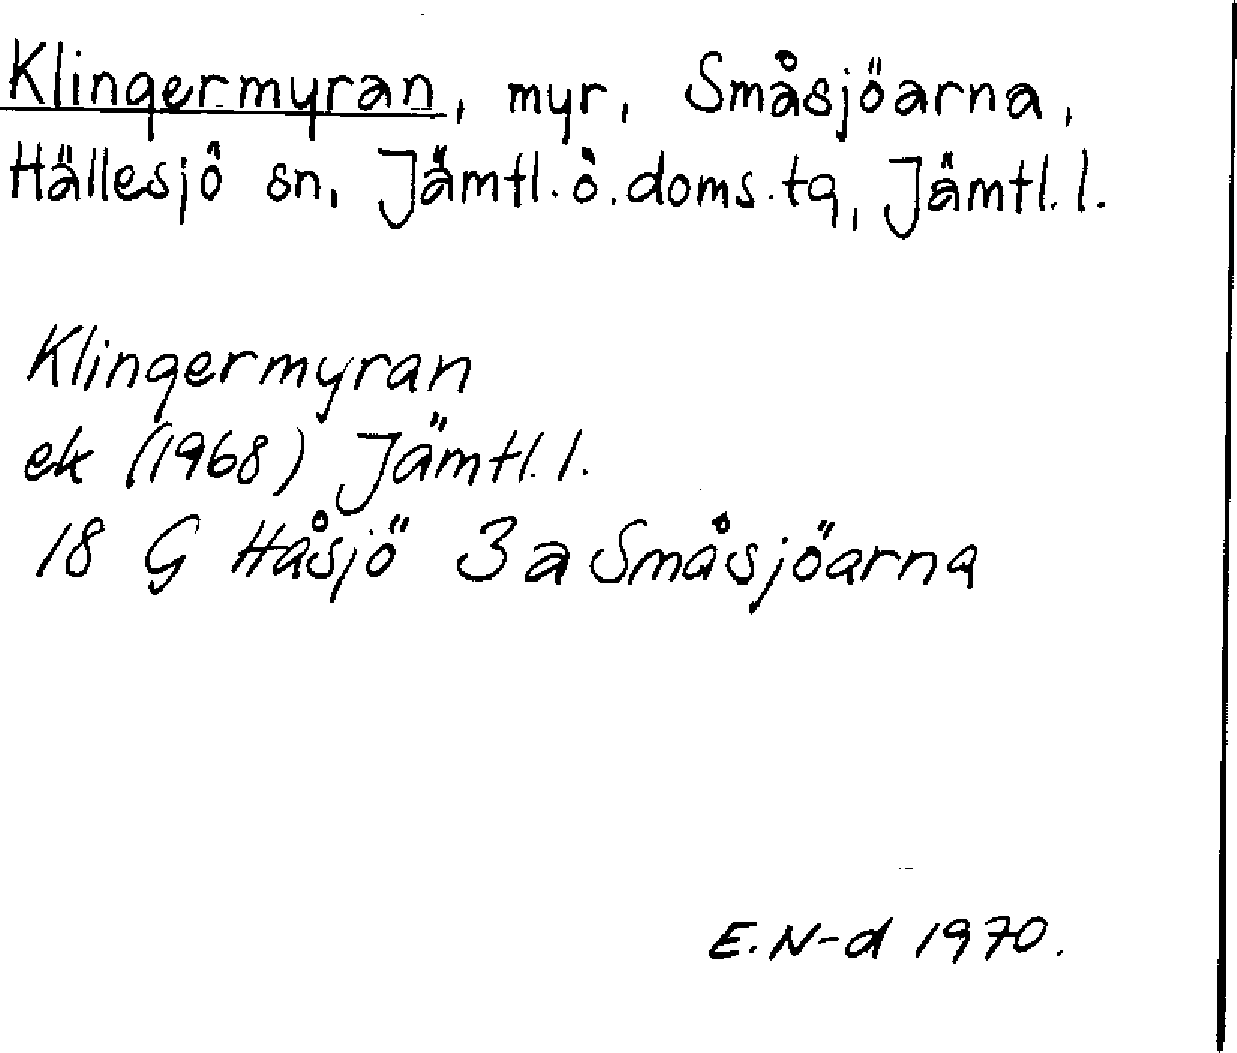 Klingermyran, myr, Småsjöarna,
Hällesjö sn, Jämtl. ö. doms. tg, Jämtl. l.
Klingermyran
ek (1968) Jämtl. l.
18 G Håsjö 3 a Småsjöarna
E. N-d 1970.